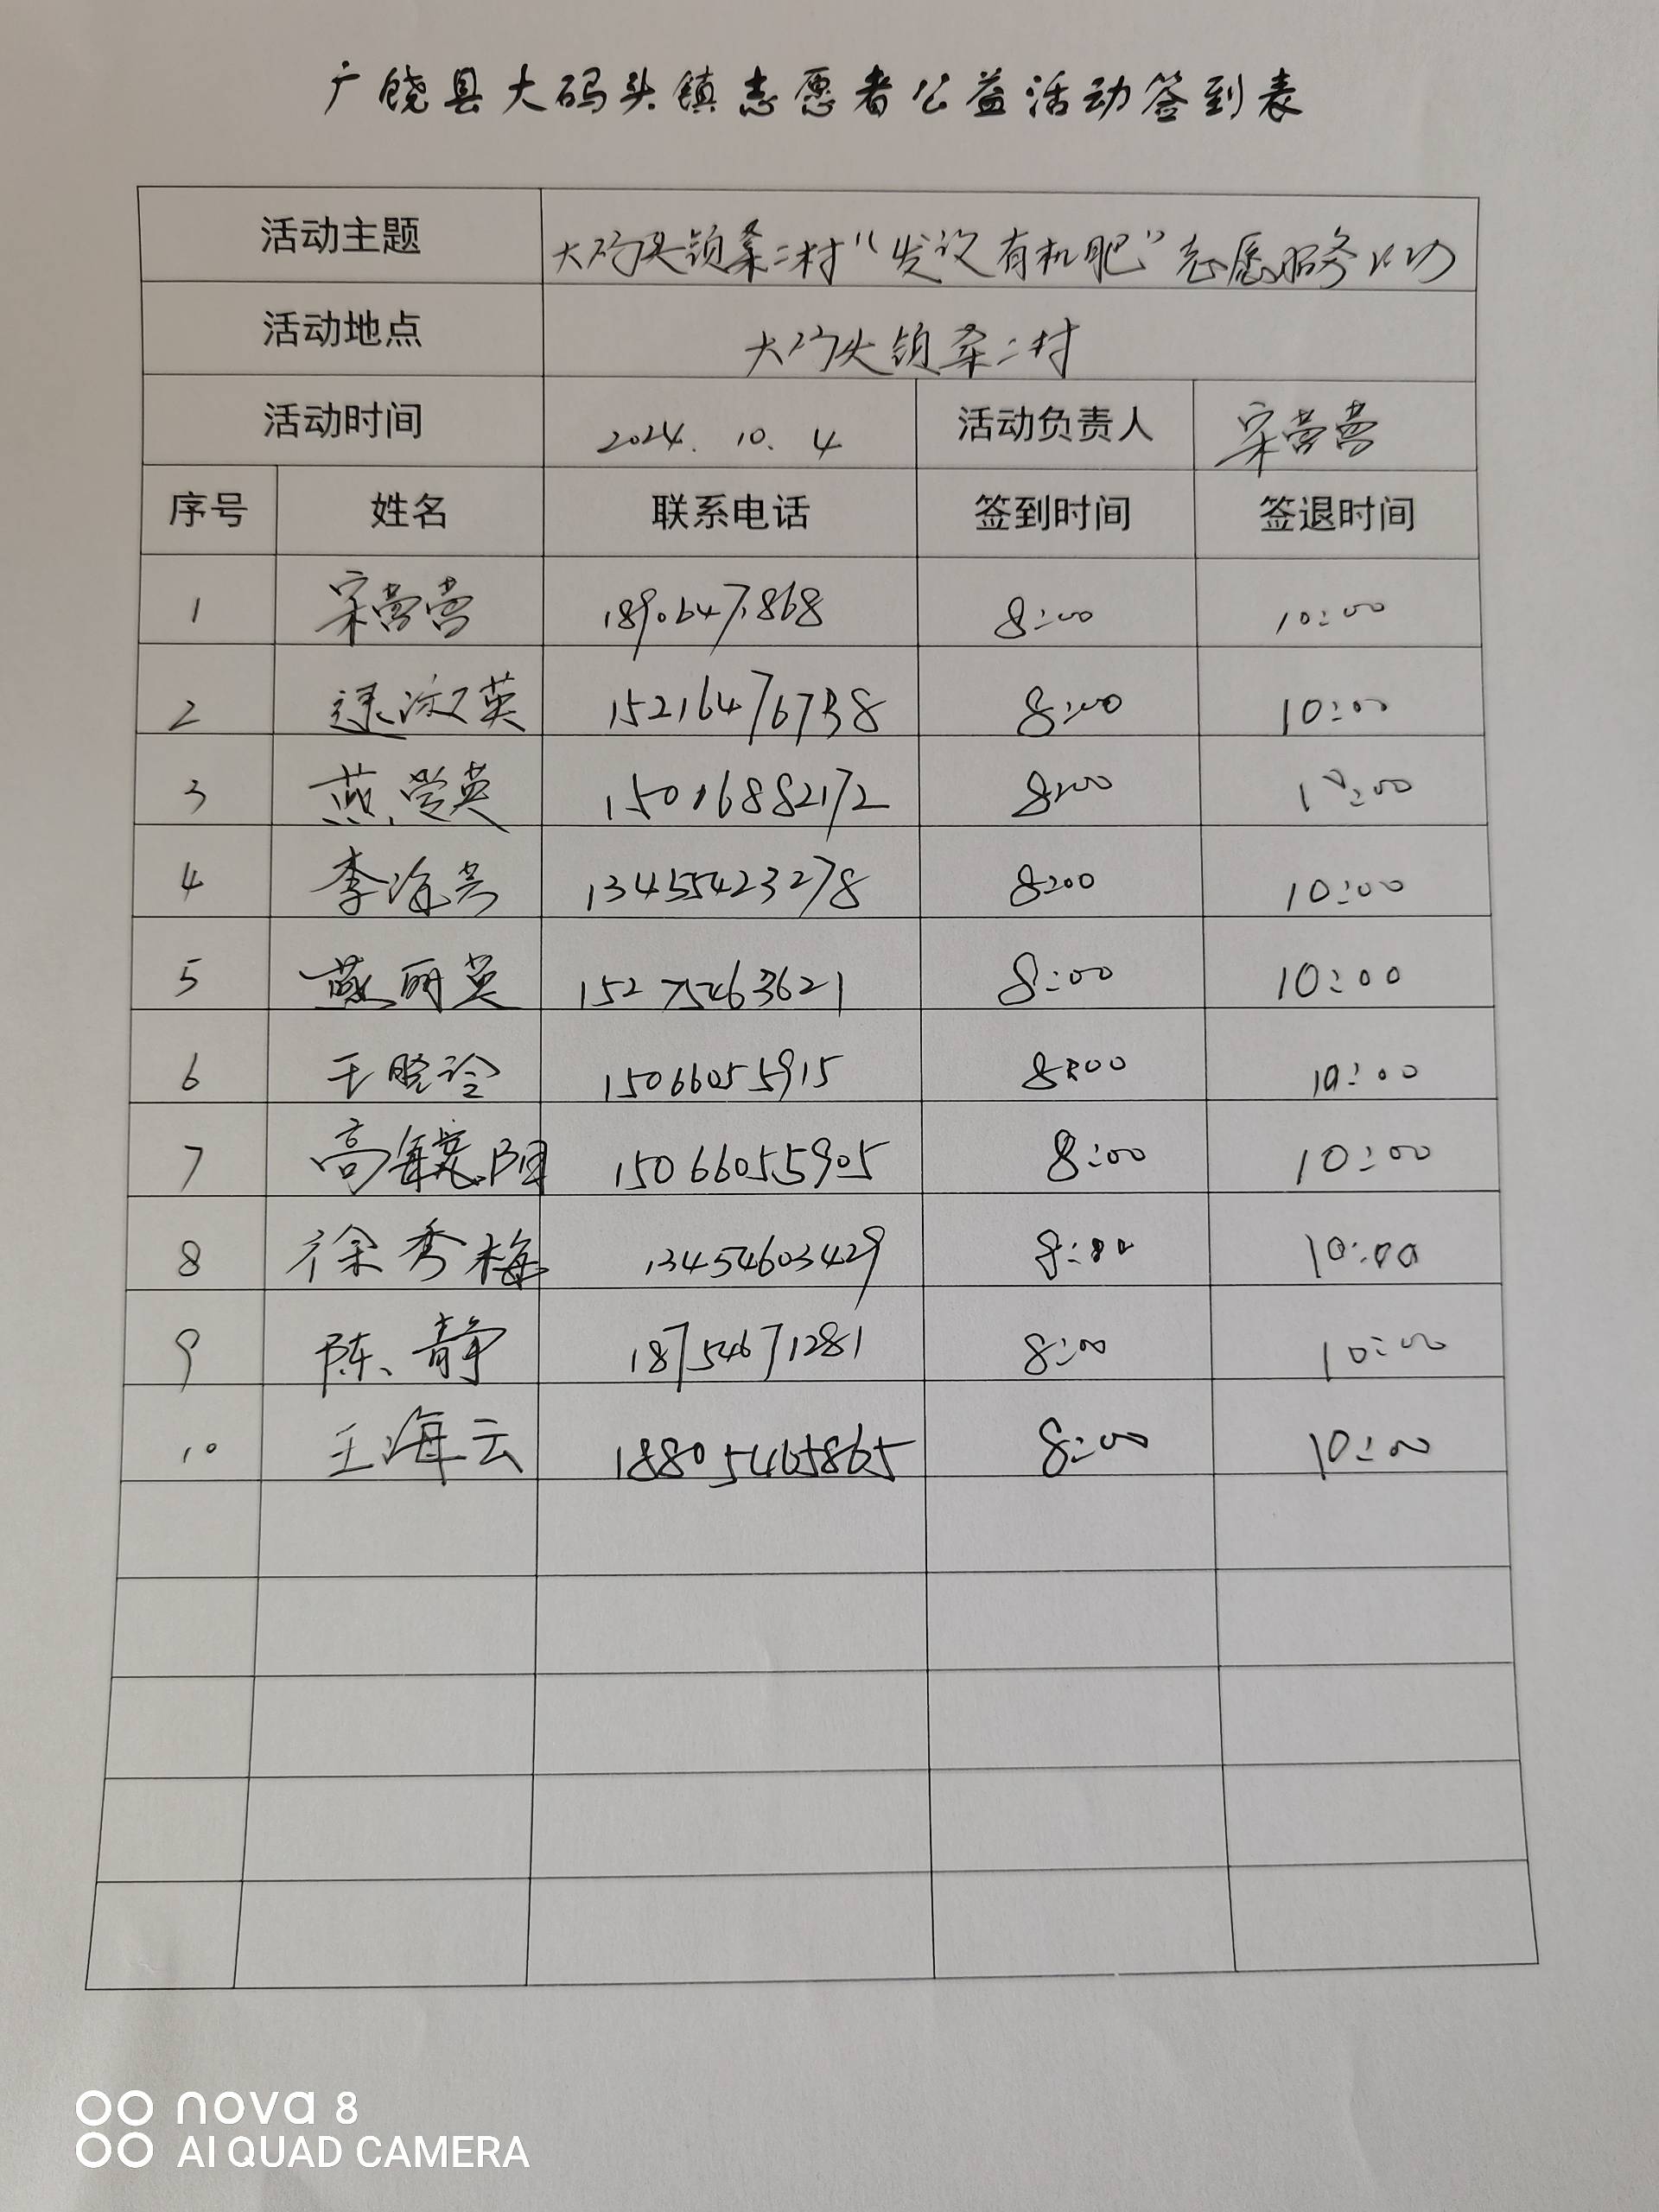 广饶县大码头镇志愿者公益活动签到表
活动主题 大码头镇桑二村“发放有机肥”志愿服务活动
活动地点 大码头镇桑二村
活动时间 2024.10.4 活动负责人 宋营营
序号 姓名 联系电话 签到时间 签退时间
1 宋营营 8:00 10:00
2 15216476738 8:00 10:00
3 燕学英 15016882172 8:00 10:00
4 李海芳 13455423278 8:00 10:00
5 燕丽英 15275463621 8:00 10:00
6 15066055915 8:00 10:00
7 15066055905 8:00 10:00
8 徐秀梅 13454603429 8:00 10:00
9 陈静 18754671281 8:00 10:00
10 王海云 18805465865 8:00 10:00
nova 8
AI QUAD CAMERA